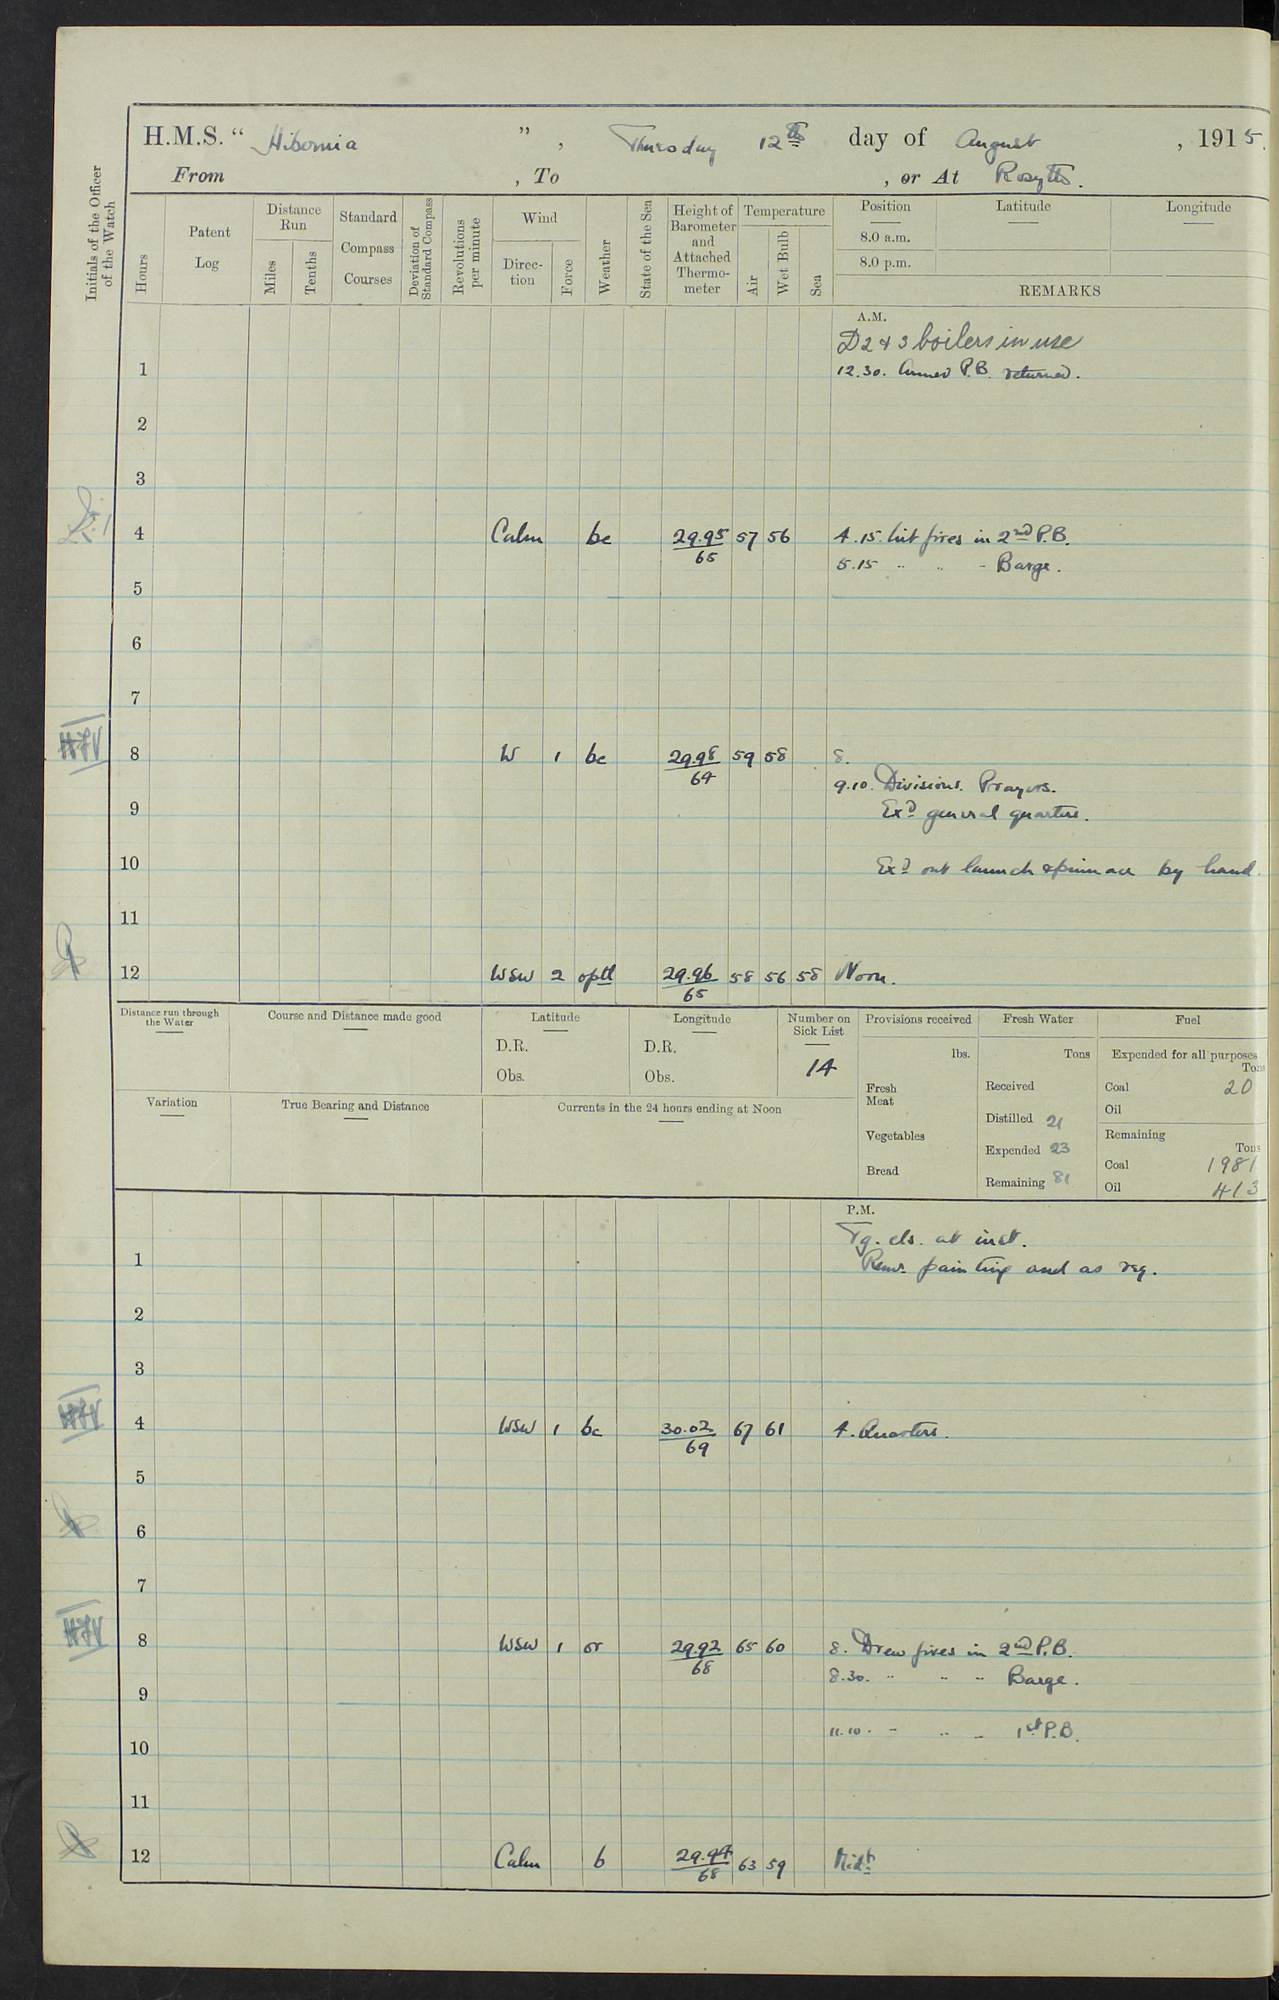 H.M.S. " Hibernia ", Thursday 12th day of August, 1915.
From , To , or At Rosyth.
Initials of the Officer of the Watch
Hours
Patent Log
Distance Run
Miles
Tenths
Standard Compass Courses
Deviation of Standard Compass
Revolutions per minute
Wind
Direction
Force
Weather
State of the Sea
Height of Barometer and Attached Thermometer
Temperature
Air
Wet Bulb
Sea
Position Latitude Longitude
8.0 a.m.
8.0 p.m.
REMARKS
A.M.
D2 & 3 boilers in use
1 12.30. Armed P.B. returned.
2
3
4 Calm bc 29.95/65 57 56 4.15. Lit fires in 2nd P.B.
5.15 " " - Barge.
5
6
7
8 W 1 bc 29.98/64 59 58 8.
9.10. Divisions. Prayers.
9 Exd general quarters.
10 Exd out launch & pinnace by hand.
11
12 WSW 2 optl 29.96/65 58 56 58 Noon.
Distance run through the Water
Course and Distance made good
Latitude
D.R.
Obs.
Longitude
D.R.
Obs.
Number on Sick List
14
Provisions received
lbs.
Fresh Meat
Vegetables
Bread
Fresh Water
Tons
Received
Distilled 21
Expended 23
Remaining 81
Fuel
Expended for all purposes
Tons
Coal 20
Oil
Remaining
Tons
Coal 1981
Oil 413
Variation
True Bearing and Distance
Currents in the 24 hours ending at Noon
P.M.
Tg. cls. at inst.
1 Remr painting and as req.
2
3
4 WSW 1 bc 30.02/69 67 61 4. Quarters.
5
6
7
8 WSW 1 or 29.92/68 65 60 8. Drew fires in 2nd P.B.
8.30. " " " Barge.
9
11.10. - " - 1st P.B.
10
11
12 Calm b 29.94/68 63 59 Midt